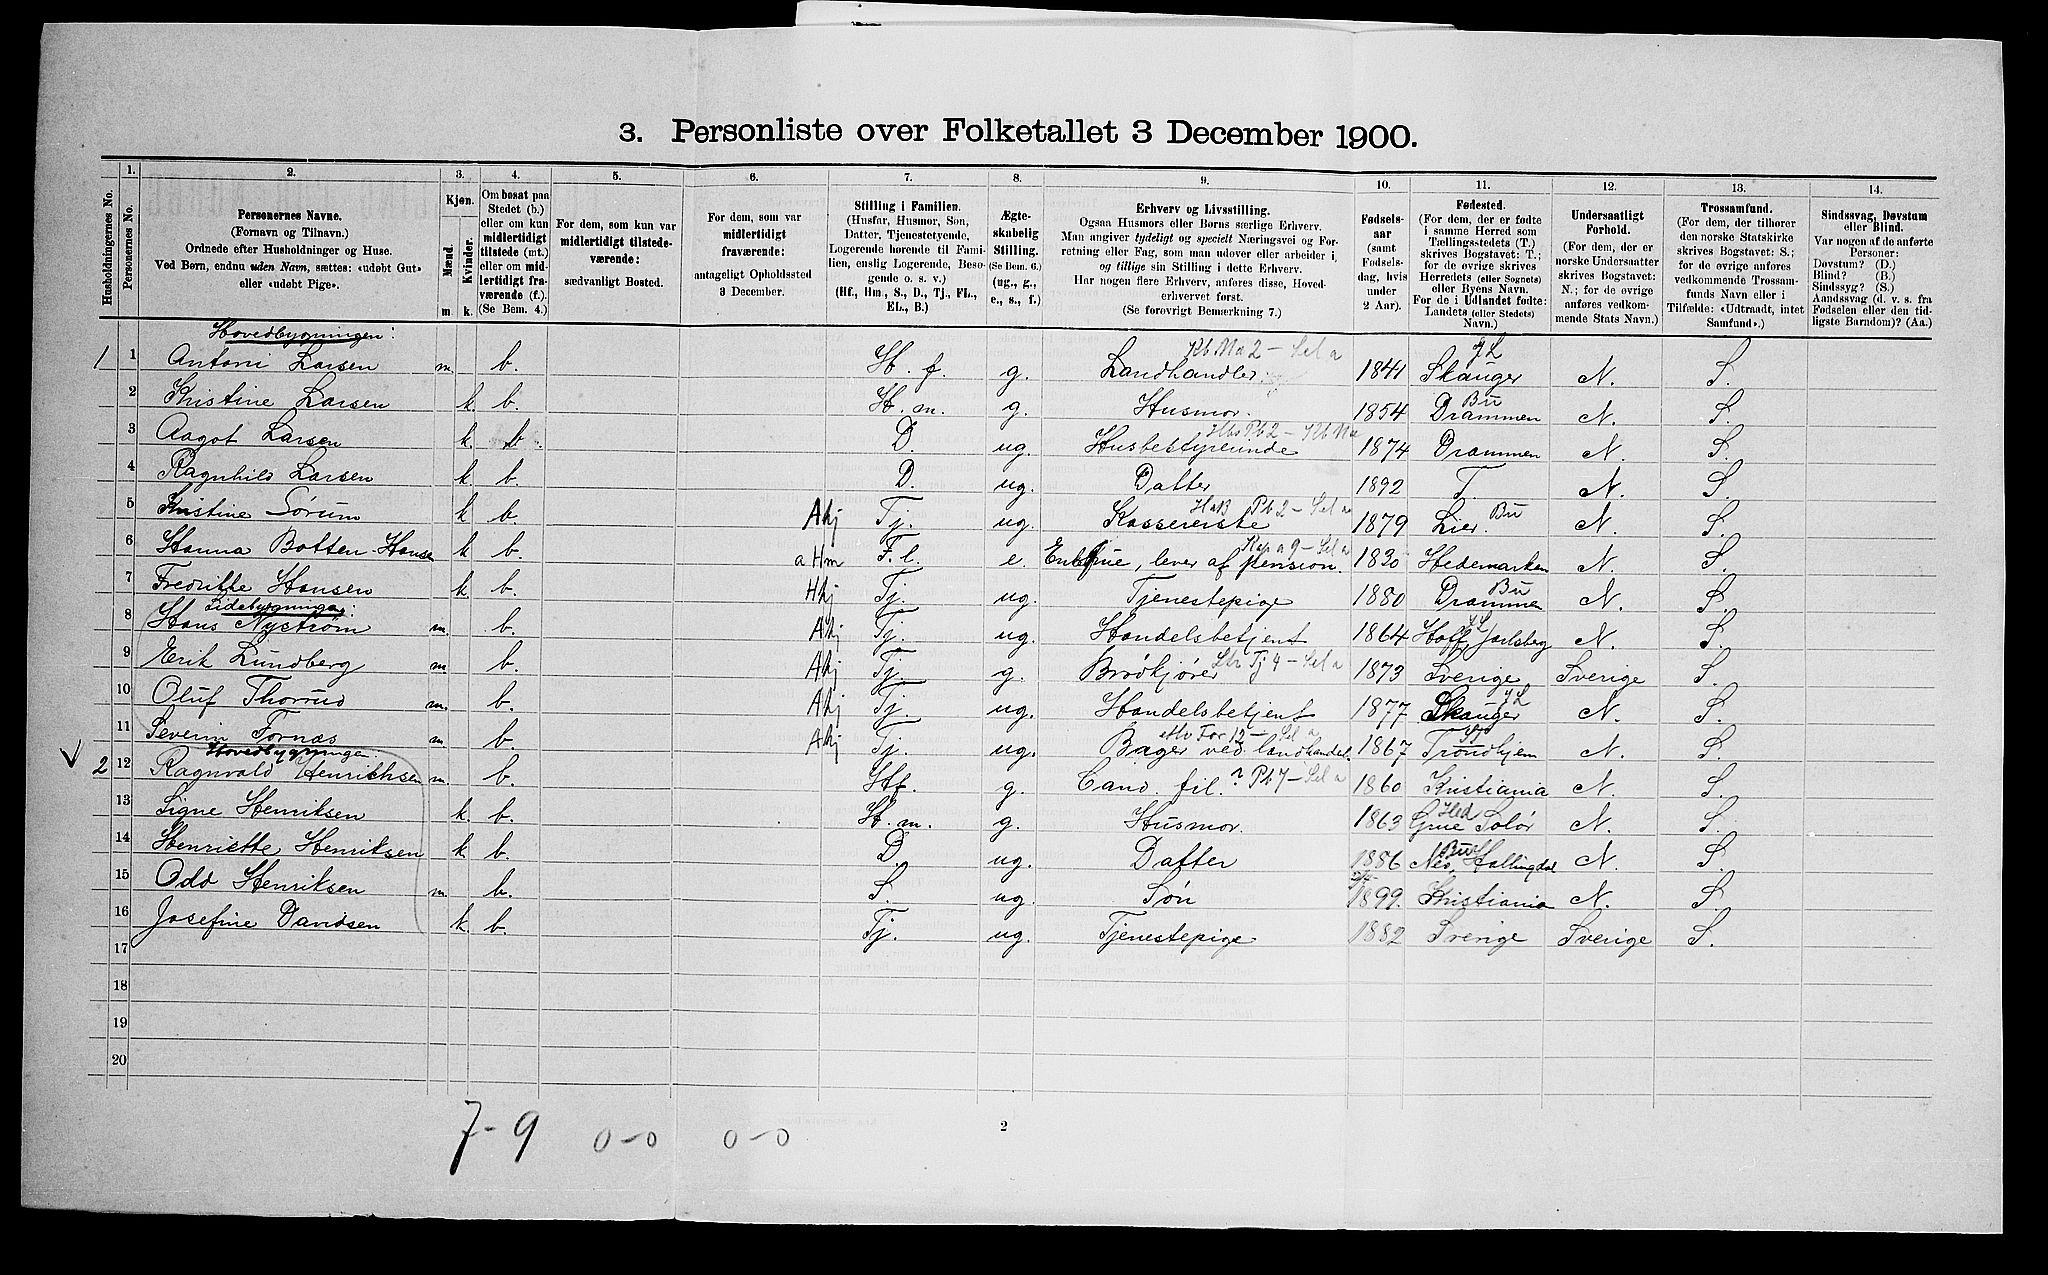 3. Personliste over Folketallet 3 December 1900.
Husholdningernes No.
1. Personernes No.
2. Personernes Navne. (Fornavn og Tilnavn.) Ordnede efter Husholdninger og Huse. Ved Børn, endnu uden Navn, sættes: «udøbt Gut» eller «udøbt Pige».
3. Kjøn. Mænd. Kvinder. m. k.
4. Om bosat paa Stedet (b.) eller om kun midlertidigt tilstede (mt.) eller om midlertidigt fraværende (f.) (Se Bem. 4.)
5. For dem, som kun var midlertidigt tilstedeværende: sædvanligt Bosted.
6. For dem, som var midlertidigt fraværende: antageligt Opholdssted 3 December.
7. Stilling i Familien. (Husfar, Husmor, Søn, Datter, Tjenestetyende, Logerende hørende til Familien, enslig Logerende, Besøgende o. s. v.) (Hf., Hm., S., D., Tj., FL., EL., B.)
8. Ægteskabelig Stilling. (Se Bem. 6.) (ug., g., e., s., f.)
9. Erhverv og Livsstilling. Ogsaa Husmors eller Børns særlige Erhverv. Man angiver tydeligt og specielt Næringsvei og Forretning eller Fag, som man udøver eller arbeider i, og tillige sin Stilling i dette Erhverv. Har nogen flere Erhverv, anføres disse, Hovederhvervet først. (Se forøvrigt Bemærkning 7.)
10. Fødselsaar (samt Fødselsdag, hvis under 2 Aar).
11. Fødested. (For dem, der er fødte i samme Herred som Tællingsstedets (T.) skrives Bogstavet: T.; for de øvrige skrives Herredets (eller Sognets) eller Byens Navn. For de i Udlandet fødte: Landets (eller Stedets) Navn.)
12. Undersaatligt Forhold. (For dem, der er norske Undersaatter skrives Bogstavet: N.; for de øvrige anføres vedkommende Stats Navn.)
13. Trossamfund. (For dem, der tilhører den norske Statskirke skrives Bogstavet: S.; for de øvrige anføres vedkommende Trossamfunds Navn eller i Tilfælde: «Udtraadt, intet Samfund».)
14. Sindssvag, Døvstum eller Blind. Var nogen af de anførte Personer: Døvstum? (D.) Blind? (B.) Sindssyg? (S.) Aandssvag (d. v. s. fra Fødselen eller den tidligste Barndom)? (Aa.)
Hovedbygningen:
1 1 Antoni Larsen m. b. H. f. g. Landhandler 1841 Skauger N. S.
2 Kristine Larsen k. b. H. m. g. Husmor. 1854 Drammen Bu N. S.
3 Aagot Larsen k. b. D. ug. Husbestyrerinde 1874 Drammen N. S.
4 Ragnhild Larsen k. b. D. ug. Datter 1892 T. N. S.
5 Kristine Sørum k b. Ahj Tj. ug. Kassererske 1879 Lier. Bu N. S.
6 Hanna Botten-Hansen k b. a Hm F. l. e. Enkefrue, lever af pension. 1830 Hedemarken N. S.
7 Fredrikke Hansen k b. Hhj Tj. ug. Tjenestepige 1880 Drammen Bu N. S.
Sidebygningen:
8 Hans Nystrøm m. b. Ahj Tj. ug. Handelsbetjent 1864 Hoff, Jarlsberg N. S.
9 Erik Lundberg m b. Ahj Tj. g. Brødkjører 1873 Sverige Sverige S.
10 Oluf Thorrud m. b. Ahj Tj. ug. Handelsbetjent 1877 Skauger N. S.
11 Severin Fornæs m b. Ahj Tj. ug. Bager ved landhandel 1867 Trondhjem N. S.
Hovedbygningen
2 12 Ragnvald Henrichsen m b. Hf. g. Cand. fil. 1860 Kristiania N. S.
13 Signe Henriksen k. b. H. m. g. Husmor. 1863 Grue Solør Hed N. S.
14 Henriette Henriksen k b. D. ug. Datter 1886 Nes, Hallingdal Bu N. S.
15 Odd Henriksen m. b. S. ug. Søn 1899. Kristiania N. S.
16 Josefine Davidsen k b. Tj. ug. Tjenestepige 1882 Sverige Sverige S.
17
18
19
20
7-9 0-0 0-0
2